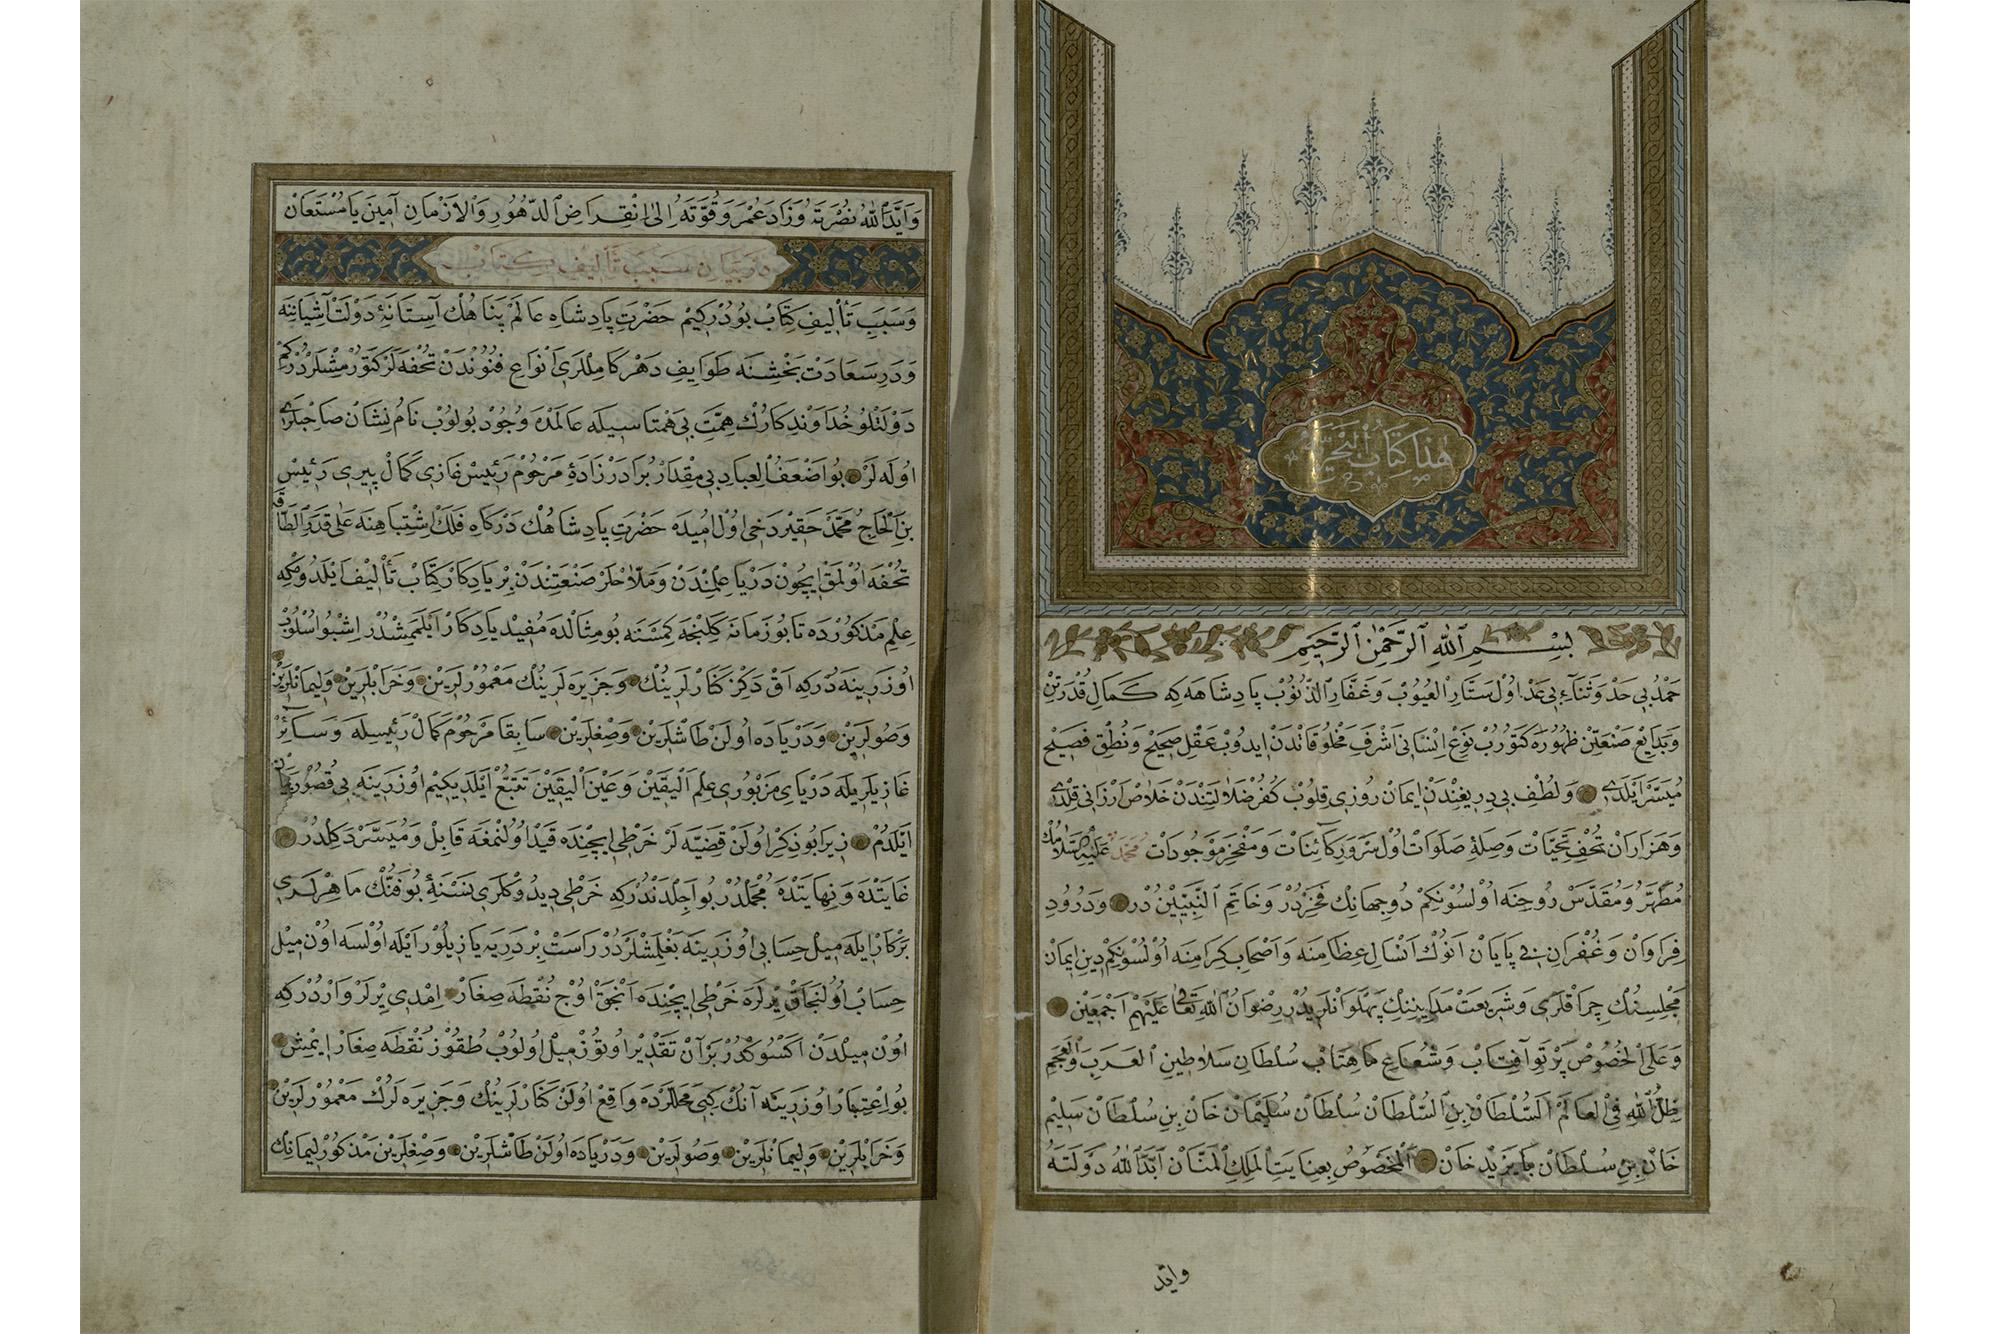 هذا كتاب بحرية
بسم الله الرحمن الرحيم
حمد بی حد و ثناء بی عد اول ستار العیوب و غفار الذنوب پادشاهه که کمال قدرتن
و بدایع صنعتن ظهوره کتورب نوع انسانی اشرف مخلوقاتدن ایدوب عقل صحیح و نطق فصیح
میسر ایلدی و لطف بی دریغندن ایمان روزی قلوب کفر ضلالتندن خلاص ارزانی قلدی
و هزاران تحف تحیات و صلهٔ صلوات اول سرور کائنات و مفخر موجودات محمد علیه السلامك
مطهر و مقدس روحنه اولسونکم دو جهانك فخریدر و خاتم النبیین در و درود
فراوان و غفران بی پایان انوك انسال عظامنه و اصحاب کرامنه اولسونکم دین ایمان
مجلسنك چراقلری و شریعت مداینك پهلوانلریدر رضوان الله تعالی علیهم اجمعین
و علی الخصوص پرتو آفتاب و شعاع ماهتاب سلطان سلاطین العرب والعجم
ظل الله فی العالم السلطان بن السلطان سلطان سلیمان خان بن سلطان سلیم
خان بن سلطان بایزید خان المخصوص بعنایت الملك المنان ابد الله دولته
واید
و اید الله نصرته و زاد عمره و قوته الی انقراض الدهور والازمان آمین یا مستعان
در بیان سبب تألیف کتاب
و سبب تألیف کتاب بودرکیم حضرت پادشاه عالم پناهك آستانهٔ دولت آشیاننه
و در سعادت بخشنه طوایف دهر کاملری انواع فنوندن تحفه لر کتورمشلردرکم
دولتلو خداوندکارك همت بی همتا سبیله عالمده وجود بولوب نام نشان صاحبلری
اوله لر بو اضعف العباد بی مقدار برادر زادهٔ مرحوم رئیس غازی کمال پیری رئیس
بن الحاج محمد حقیر دخی اول امیده حضرت پادشاهك درکاه فلك اشتباهنه علی قدر الطاقه
تحفه اولمق ایچون دریا علمندن و ملاحلر صنعتندن بر یادکار کتاب تألیف ایلدومکه
علم مذکورده تا بو زمانه کلنجه کمسنه بو مثالده مفید یادکار ایلممشدر اشبو اسلوب
اوزرینه درکه اق دکز کنارلرینك و جزیره لرینك معمورلرین و خرابلرین و لیمانلرین
و صولرین و دریاده اولن طاشلرین و صغلرین سابقا مرحوم کمال رئیسله و سائر
غازیلریله دریای مزبوری علم الیقین و عین الیقین تتبع ایلدیکیم اوزرینه بی قصور بیان
ایلدم زیرا بو ذکر اولن قضیه لر خرطی ایچنده قیدا اولنمغه قابل و میسر دکلدر
غایتده و نهایتده مجملدر بو اجلدندرکه خرطی دیدوکلری نسنهٔ بو فنك ماهرلری
برکار ایله میل حسابی اوزرینه بغلمشلردر راست بر دریه یا زیلور ایله اولسه اون میل
حساب اولنجاق یرلره خرطی ایچنده انجق اوچ نقطه صغار امدی یرلر واردرکه
اون میلدن اکسوکدر بر آن تقدیر اوتوز میل اولوب طقوز نقطه صغار ایمش
بو اعتبار اوزرینه آنك کبی محللرده واقع اولن کنارلرینك و جزیره لرك معمورلرین
و خرابلرین و لیمانلرین و صولرین و دریاده اولن طاشلرین و صغلرین مذکور لیمانك